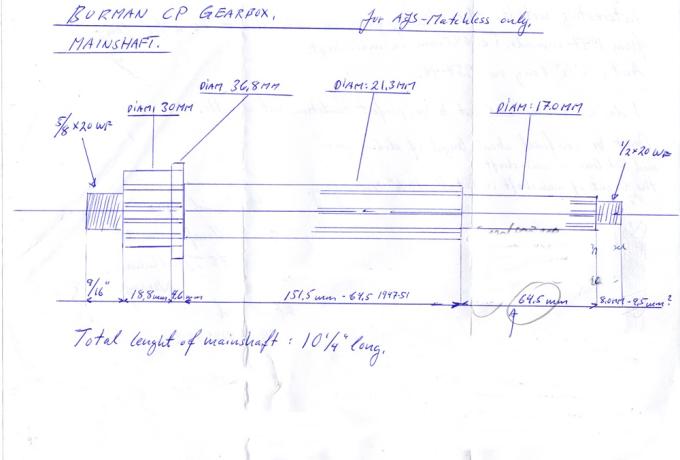 BURMAN CP GEARBOX. for AJS-Matchless only.
MAINSHAFT.
DIAM 36,8MM
DIAM: 21.3MM
DIAM: 30MM
DIAM: 17.0MM
5/8 x 20 WF
1/2 x 20 WF
9/16" 18,8mm 4.6mm 151,5mm - 64,5 1947-51 64.5mm 8.0MM - 9,5mm?
A
Total lenght of mainshaft : 10 1/4" long.